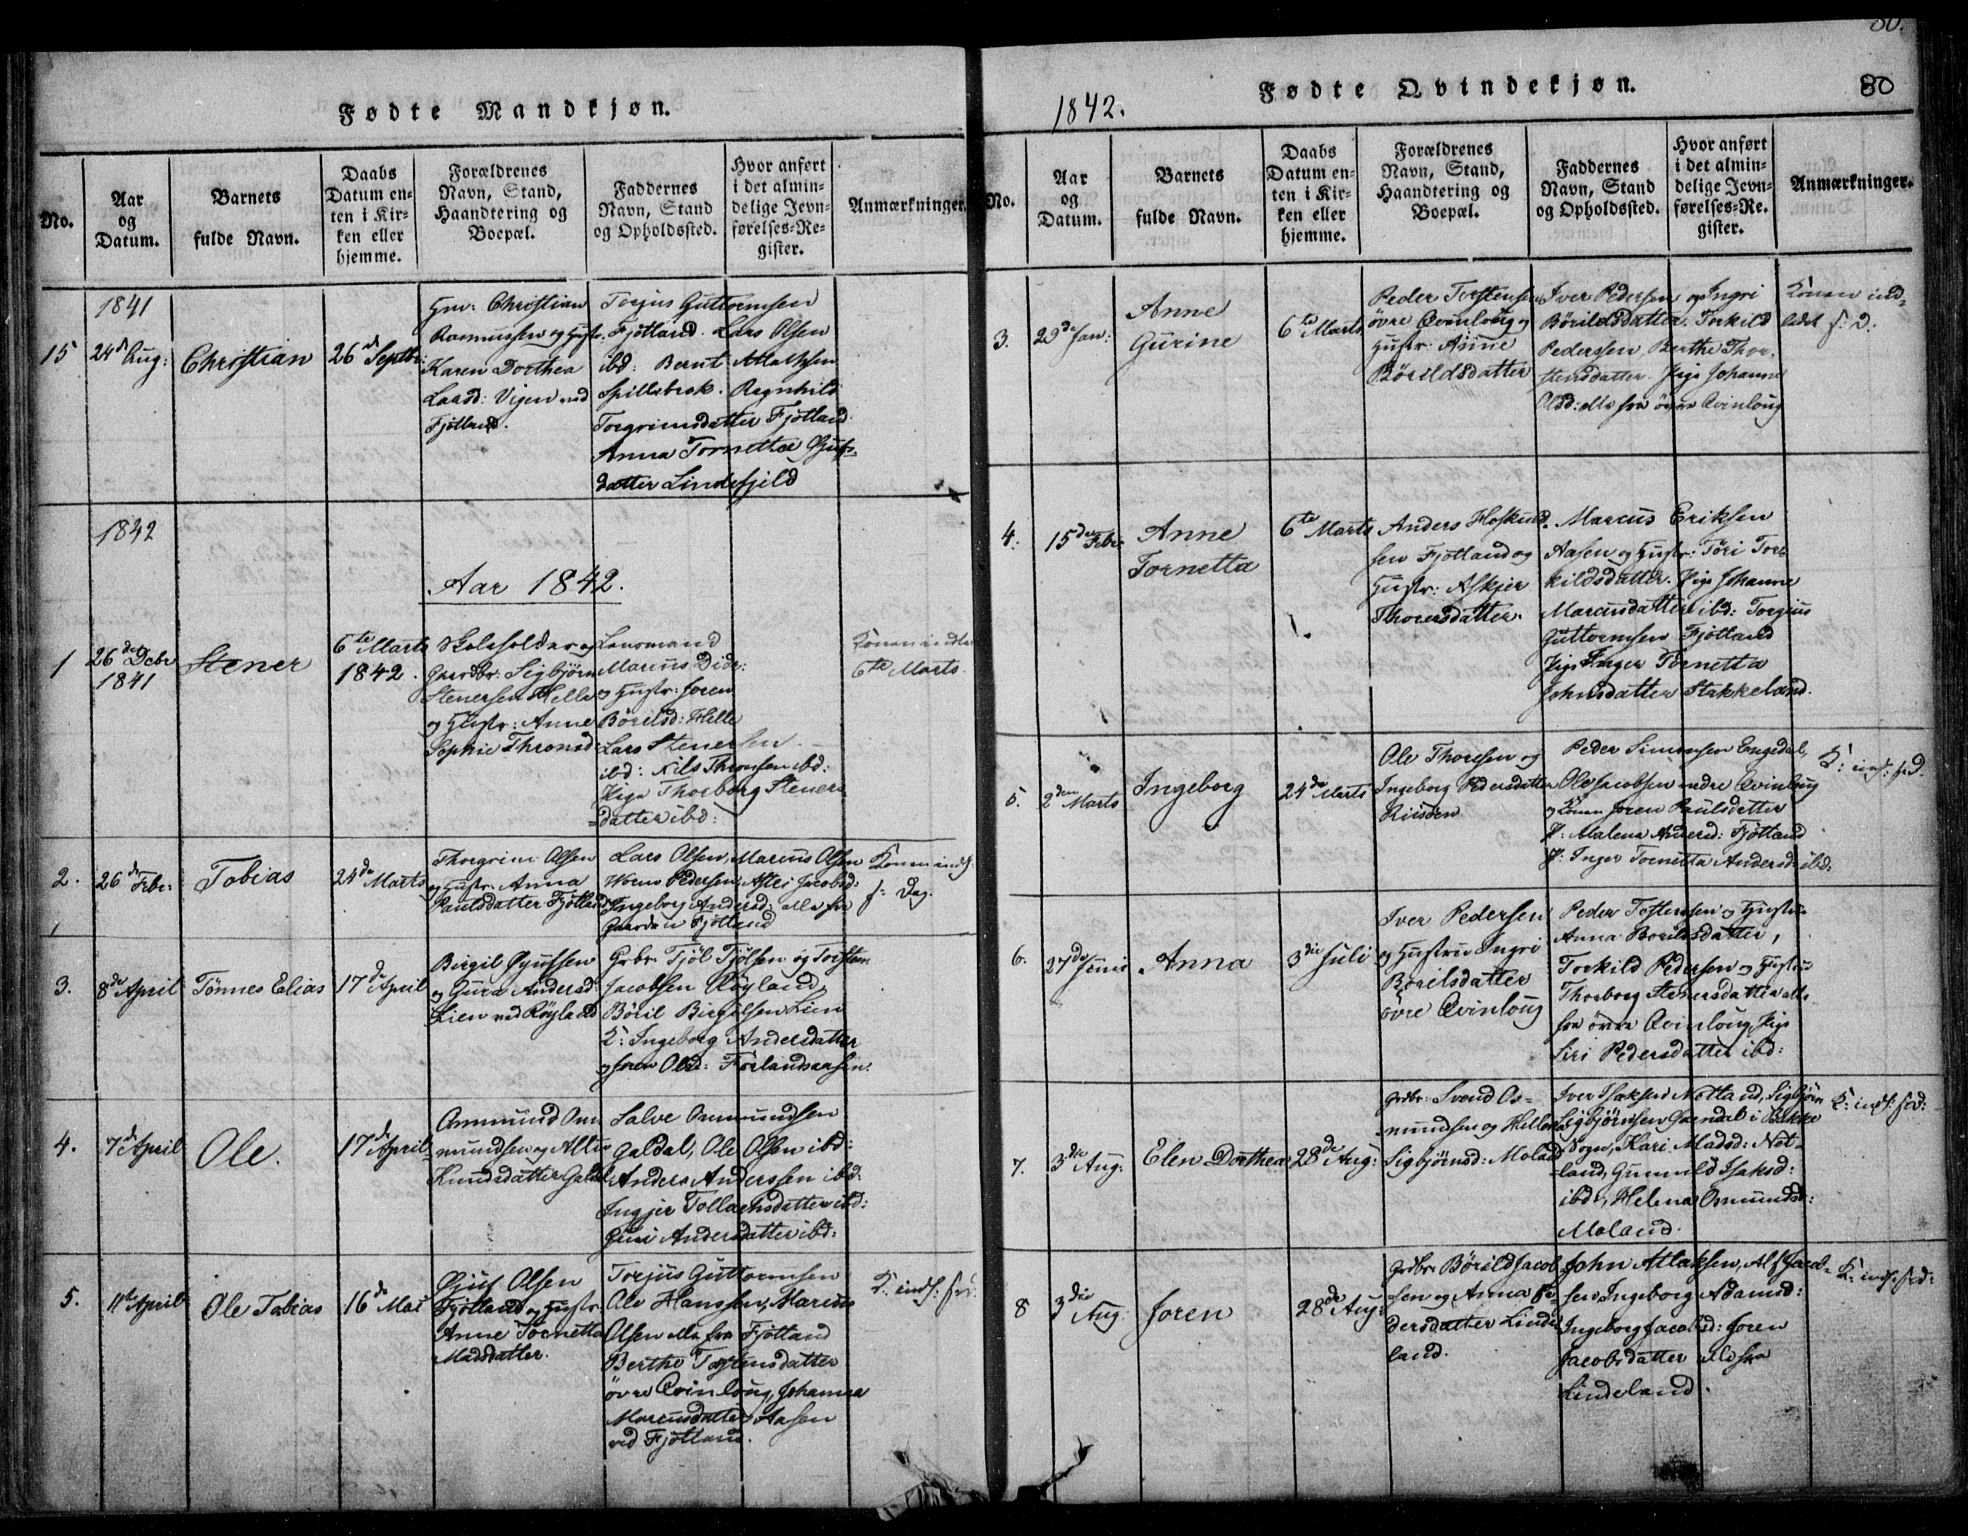 Fødte Mandkjøn.
No.
Aar
og
Datum.
Barnets
fulde Navn.
Daabs
Datum en-
ten i Kir-
ken eller
hjemme.
Forældrenes
Navn, Stand,
Haandtering og
Boepæl.
Faddernes
Navn, Stand
og Opholdssted.
Hvor anført
i det almin-
delige Jevn-
førelses-Re-
gister.
Anmærkninger.
1841
15
24de Aug:
Christian
26de Septbr:
Christian
Rasmussen og Hustr.
Karen Dorthea
Laasd: Vigen ved
Fjotland.
Torjus Guttormsen
Fjotland. Lars Olsen
ibd: Bernt Atlaksen
Spillebrok. Ragnhild
Torgrimsdatter Fjotland
Anna Tornetta Gjufs-
datter Lindefjeld
1842
Aar 1842.
1
26de Decbr
1841
Stener
6te Marts
1842.
Skoleholder og
Gaardbr: Sigbjørn
Stenersen Helle
og Hustr: Anne
Sophie Thronsd:
Lensmand
Marcus Didr:
og Hustr: Joren
Börilsd: Helle
Lars Stenersen
ibd: Nils Thronsen ibd:
Pige Thorborg Steners-
datter ibd:
Konen indled
6te Marts.
2.
26de Febr:
Tobias
24de Marts
Thorgrim Olsen
og Hustr: Anna
Paulsdatter Fjotland
Lars Olsen, Marcus Olsen
Woren Pedersen, Asloi Jacobsd:
Ingeborg Andersd: alle fra
Gaarden Fjotland
Konen indl.
s: Dag.
3.
8de April
Tønnes Elias
17de April
Birgil Gjufsen
og Guro Andersd
Lien ved Röyland
Grbr. Tjöl Tjölsen og Torsten
Jacobsen Röyland,
Böril Birgilsen Lien
K: Ingeborg Andersdatter
og Joren Olsd: Förlandsaasen.
4.
7de April
Ole.
17de April
Ommund Om-
mundsen og Alti
Knudsdatter Galdal
Salve Ommundsen
Galdal, Ole Olsen ibd:
Anders Anderssen ibd:
Ingjer Tollachsdatter ibd:
Guri Andersdatter ibd:
5.
11te April
Ole Tobias
16de Mai
Gjuf Olsen
Fjotland og Hustr
Anne Tornetta
Madsdatter.
Torjus Guttormsen
Ole Hanssen, Marcus
Olsen alle fra Fjotland
Berthe Torstensdatter
övre Qvinloug, Johanna
Marcusdatter Aasen
ved Fjotland.
K: indl: s: d:
80.
80
1842.
Fødte Qvindekjøn.
No.
Aar
og
Datum.
Barnets
fulde Navn.
Daabs
Datum en-
ten i Kir-
ken eller
hjemme.
Forældrenes
Navn, Stand,
Haandtering og
Boepæl.
Faddernes
Navn, Stand
og Opholdssted.
Hvor anført
i det almin-
delige Jevn-
førelses-Re-
gister.
Anmærkninger.
3.
29de Jan:
Anne
Gurine
6te Marts
Peder Torstensen
övre Qvinloug og
Hustr: Anne
Börildsdatter
Iver Pedersen og Ingri
Börildsdatter. Torkild
Pederssen, Berthe Thor-
stensdatter. Pige Johanne
Olsd: alle fra övre Qvinloug
Konen ind-
ledet s: d:
4.
15de Febr:
Anne
Tornetta
6te Marts
Anders Hoskuld-
sen Fjotland og
Hustr: Askjer
Thoresdatter.
Marcus Eriksen
Aasen og Hustr: Töri Tor-
kildsdatter. Pige Johanne
Marcusdatter ibd: Torgius
Guttormsen Fjotland
Pige Inger Tornetta
Johnsdatter Stakkeland.
5.
2den Marts
Ingeborg
24de Marts
Ole Thoresen og
Ingeborg Pedersdatter
Peder Simonsen Engedal,
Ole Jacobsen nedre Qvinloug
og Kone Joren Paulsdatter
P: Malena Andersd: Fjotland
P: Inger Tornetta Andersd: ibd:
K: indl: s: d.
6.
27de Junii
Anna
3die Juli
Iver Pedersen
og Hustru Ingri
Borilsdatter
övre Qvinloug
Peder Tostensen og Hustru
Anna Borilsdatter,
Torkild Pedersen og Hustru
Thorborg Stenersdatter alle
fra övre Qvinloug, Pige
Siri Pedersdatter ibd:
7.
3die Aug:
Elen Dorthea
28de Aug:
Grdbr: Svend Os-
mundsen og Hellen
Sigbjörnsd: Moland
Iver Isaksen Netland, Sigbjörn
Sigbjörnsen Grendal i Bakke
Sogn, Kari Madsd: Net-
land, Gunnild Isaksd:
ibd:, Helena Osmundsd:
Moland.
K: indl: s: d:
8
3die Aug:
Joren
28de Aug:
Grdbr: Börild Jacob-
sen og Anna Pe-
dersdatter Linde-
land.
John Atlaksen, Alf Jacob-
sen, Ingeborg Adamsd:
Ingeborg Jacobsd: Joren
Jacobsdatter alle fra
Lindeland.
K: indl: s: d: